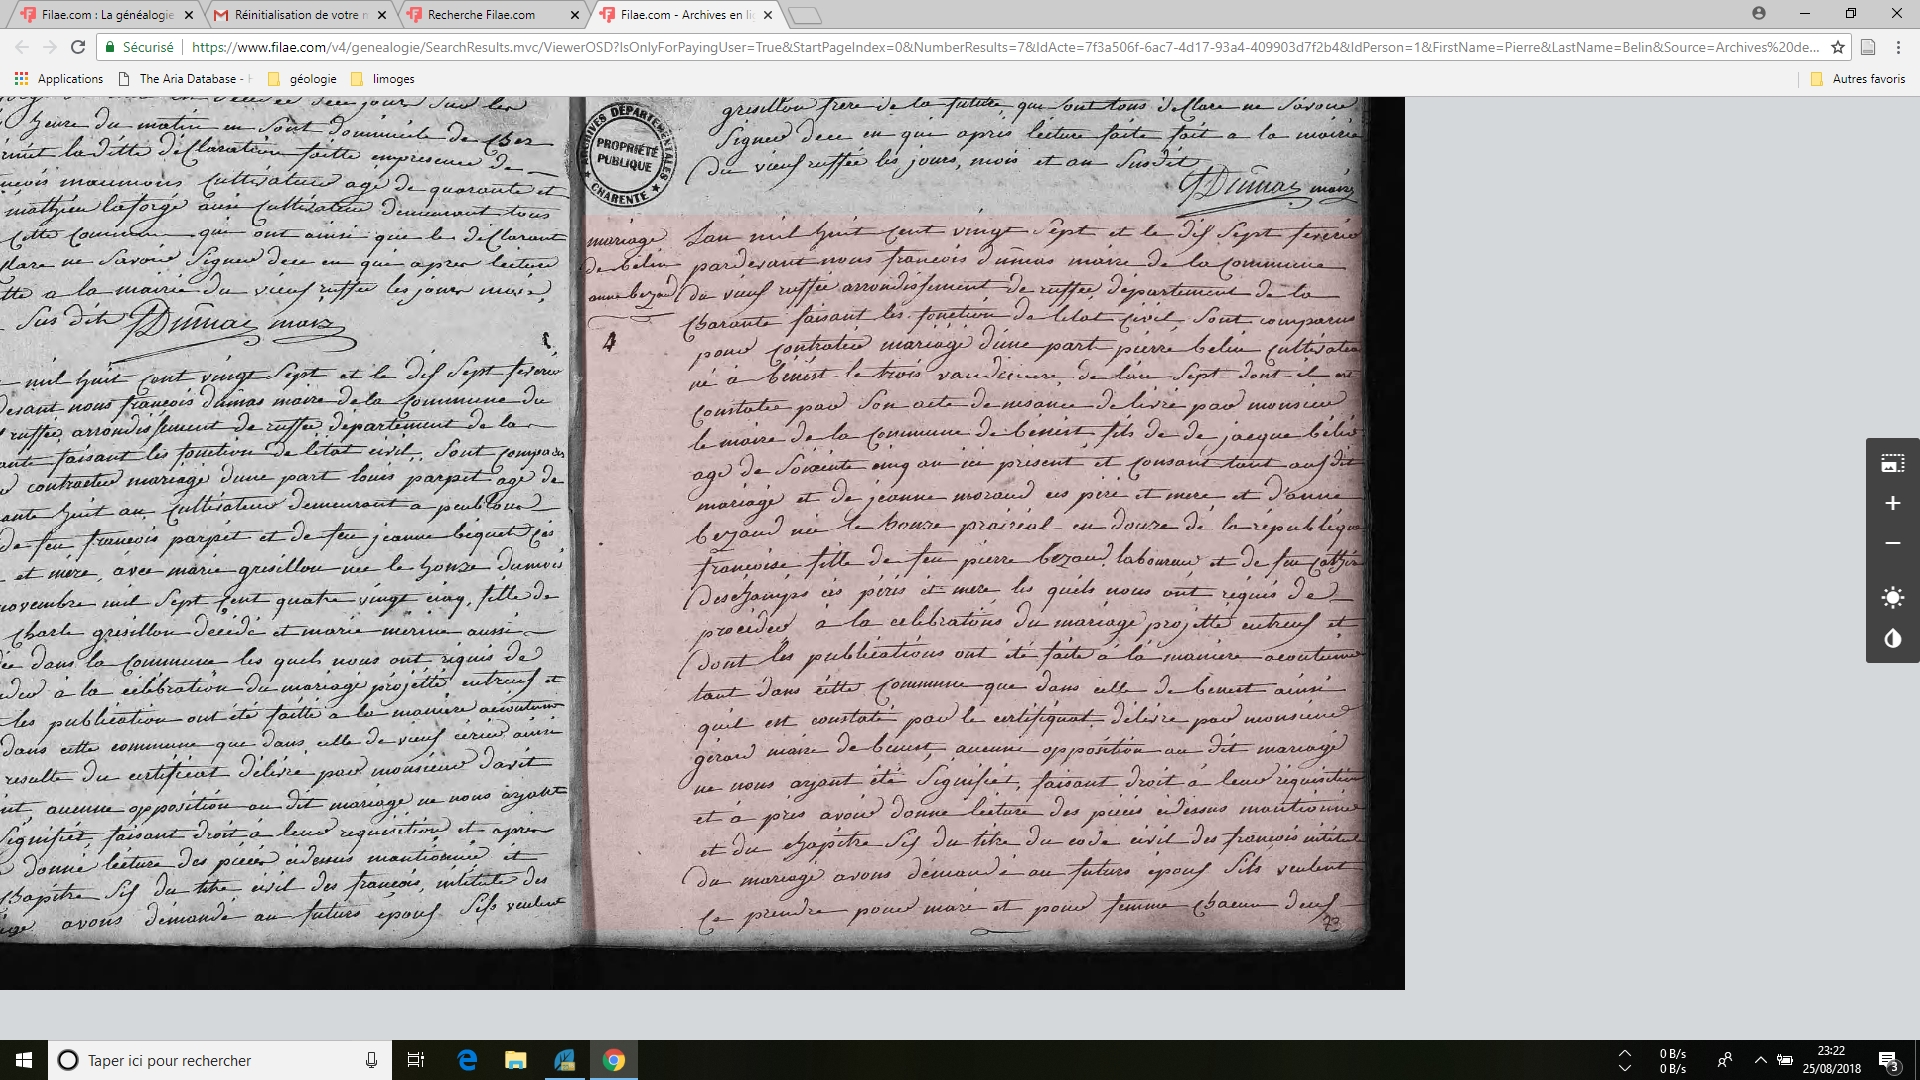 Filae.com : La généalogie
Réinitialisation de votre
Recherche Filae.com
Filae.com - Archives en li
Sécurisé
https://www.filae.com/v4/genealogie/SearchResults.mvc/ViewerOSD?IsOnlyForPayingUser=True&StartPageIndex=0&NumberResults=7&IdActe=7f3a506f-6ac7-4d17-93a4-409903d7f2b4&IdPerson=1&FirstName=Pierre&LastName=Belin&Source=Archives%20de...
Applications
The Aria Database -
géologie
limoges
Autres favoris
heure du matin en sont domicile de chez
ditte déclaration faitte empresence de
maumons cultivateur agé de quarante et
mathieu laforge aussi cultivateur demeurant tous
cette commune qui ont ainsi que le déclarant
ne savoir signer dece en que apres lecture
a la mairie du vieux ruffée les jour mois,
sus dit Dumas maire
mil huit cent vingt sept et le dix sept fevrier
devant nous francois dumas maire de la commune du
ruffée, arrondissement de ruffée département de la
faisant les fonction de létat civil, sont comparus
contracter mariage dune part louis parpet age de
huit an, cultivateur demeurant a
de feu francois parpet et de feu jeanne biquet ces
et mere, avec marie gresillon née le honze du mois
novembre mil sept cent quatre vingt cinq, fille de
charle gresillon décédé et marie merine aussi
dans la commune les quels nous ont réquis de
à la célébration du mariage projetté entreux et
les publication ont été faitte a la maniere acoutumé
dans cette commune que dans celle de vieux cérier ainsi
resulte du certificat délivré par monsieur davit
aucunne opposition au dit mariage ne nous ayant
signifiét, faisant droit à leur requisition et apres
donné lecture des pieces cidessus mantionnée et
chapitre six du titre civil des francois, intitulé des
avons démandé au futurs époux sils veulent
ARCHIVES DÉPARTEMENTALES
PROPRIÉTÉ
PUBLIQUE
CHARENTE
gresillon frere de la future, qui sont tous déclaré ne savoir
signer dece en qui apres lecture faitte fait a la mairie
du vieux ruffée les jours, mois et an susdit
Dumas maire
mariage
de bélin
anne bezaud
4
Lan mil huit cent vingt sept et le dix sept fevrier
pardevant nous francois dumas maire de la commune
du vieux ruffée arrondissement de ruffée, département de la
charante faisant les fonction de létat civil, sont comparus
pour contracter mariage dune part pierre belin cultivateur
né à bénest le trois vandemiere, de lan sept dont il est
constatée par son acte de nesance delivré par monsieur
le maire de la commune de bénest, fils de de jacque bélin
age de soixente cinq an ice present et consant tant au dit
mariage et de jeanne moraud ces pére et mere et d'anne
bezaud née le honze prairéal en douze dé la républiqu
françoise fille de feu pierre bezaud laboureur et de feu
deschamps ces péres et mere les quels nous ont réquis de
procéder à la celebrations du mariage projetté entreux et
dont les publications ont été faite à la maniere acoutumé
tant dans cette commune que dans celle de benest ainsi
quil est constaté par le certifiquat délivré par monsieur
gérard maire de benest, aucunne opposition au dit mariage
ne nous ayant été signifiét, faisant droit à leur réquisition
et à pres avoir donné lecture des pieces cidessus mantionnée
et du chapitre six du titre du code civil des francois intitulé
du mariage avons démandé au futurs époux sils veulent
ce prendre pour mari et pour femme chacun deux
73
Taper ici pour rechercher
0 B/s
0 B/s
23:22
25/08/2018
3